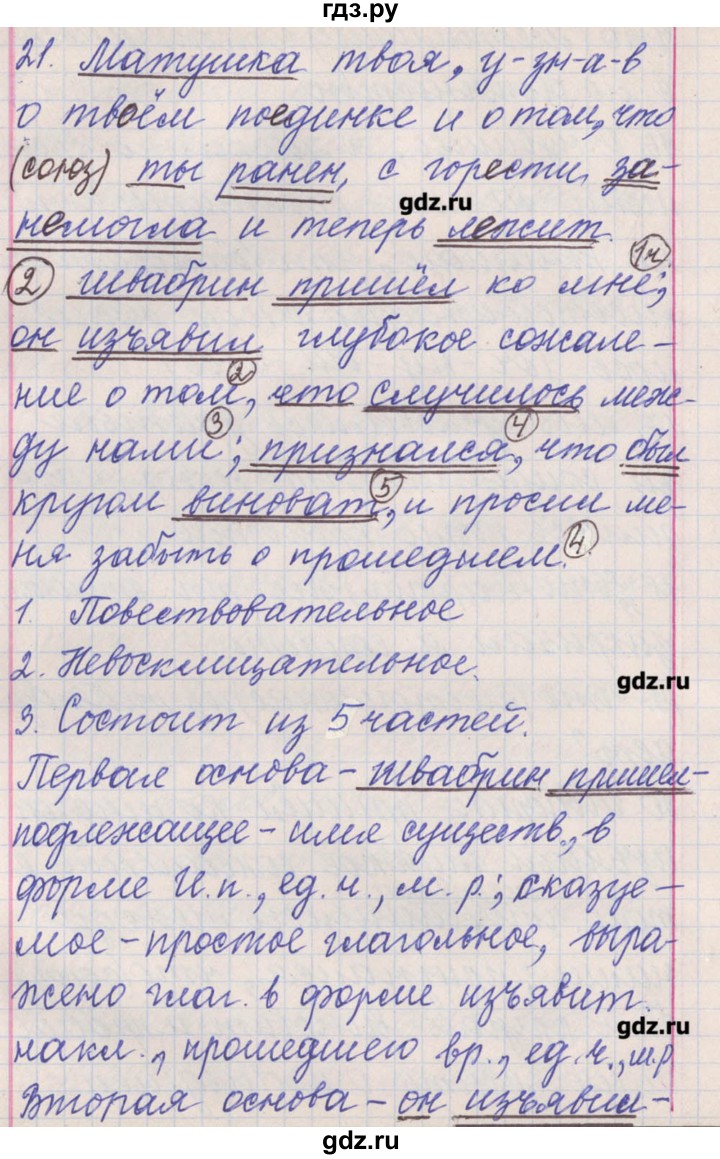 гдз.ру
21. Матушка твоя, у-зн-а-в
о твоём поединке и о том, что
(союз) ты ранен, с горести за-
gdz.ru
немогла и теперь лежит.
1ч
② Швабрин пришёл ко мне;
он изъявил глубокое сожале-
2
ние о том, что случилось меж-
3 4
ду нами; признался, что был
5
кругом виноват, и просил ме-
ня забыть о прошедшем. 4
1. Повествовательное
2. Невосклицательное.
gdz.ru
3. Состоит из 5 частей.
Первая основа - Швабрин пришел-
подлежащее - имя существ., в
форме И.п., ед.ч., м.р.; сказуе-
мое - простое глагольное, выра-
жено глаг. в форме изъявит.
gdz.ru
накл., прошедшего вр., ед.ч., м.р
Вторая основа - он изъявил-
gdz.ru